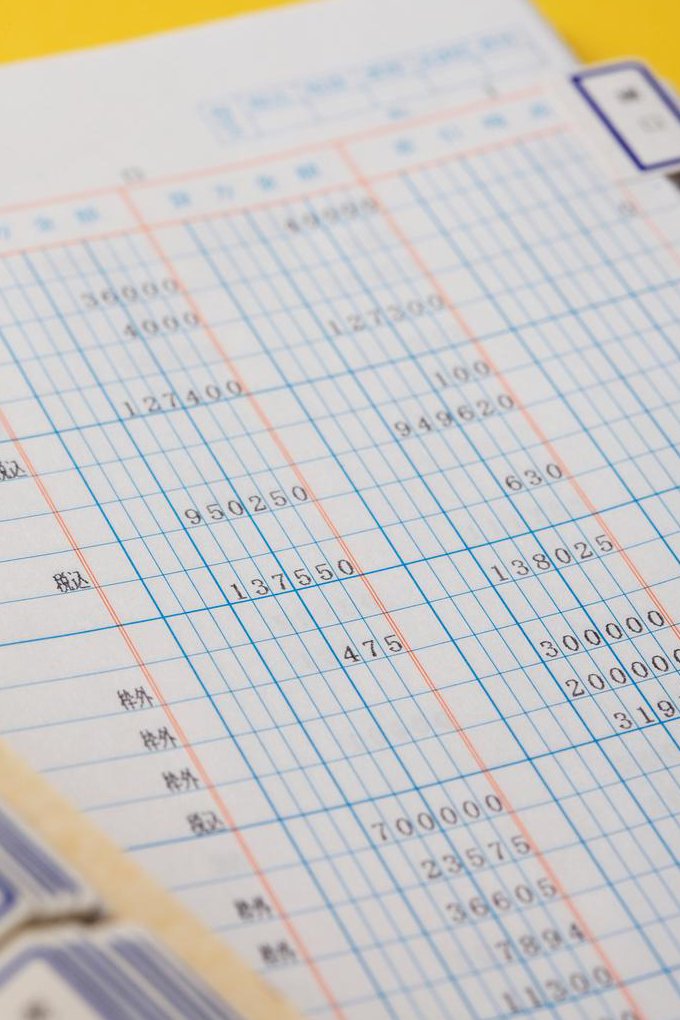 貸方金額
36000
4000
127300
127400
税込 100
949620
950250
税込 630
137550
138025
枠外 475
枠外 300000
枠外 200000
税込 319
700000
枠外 23575
枠外 36605
7894
11300